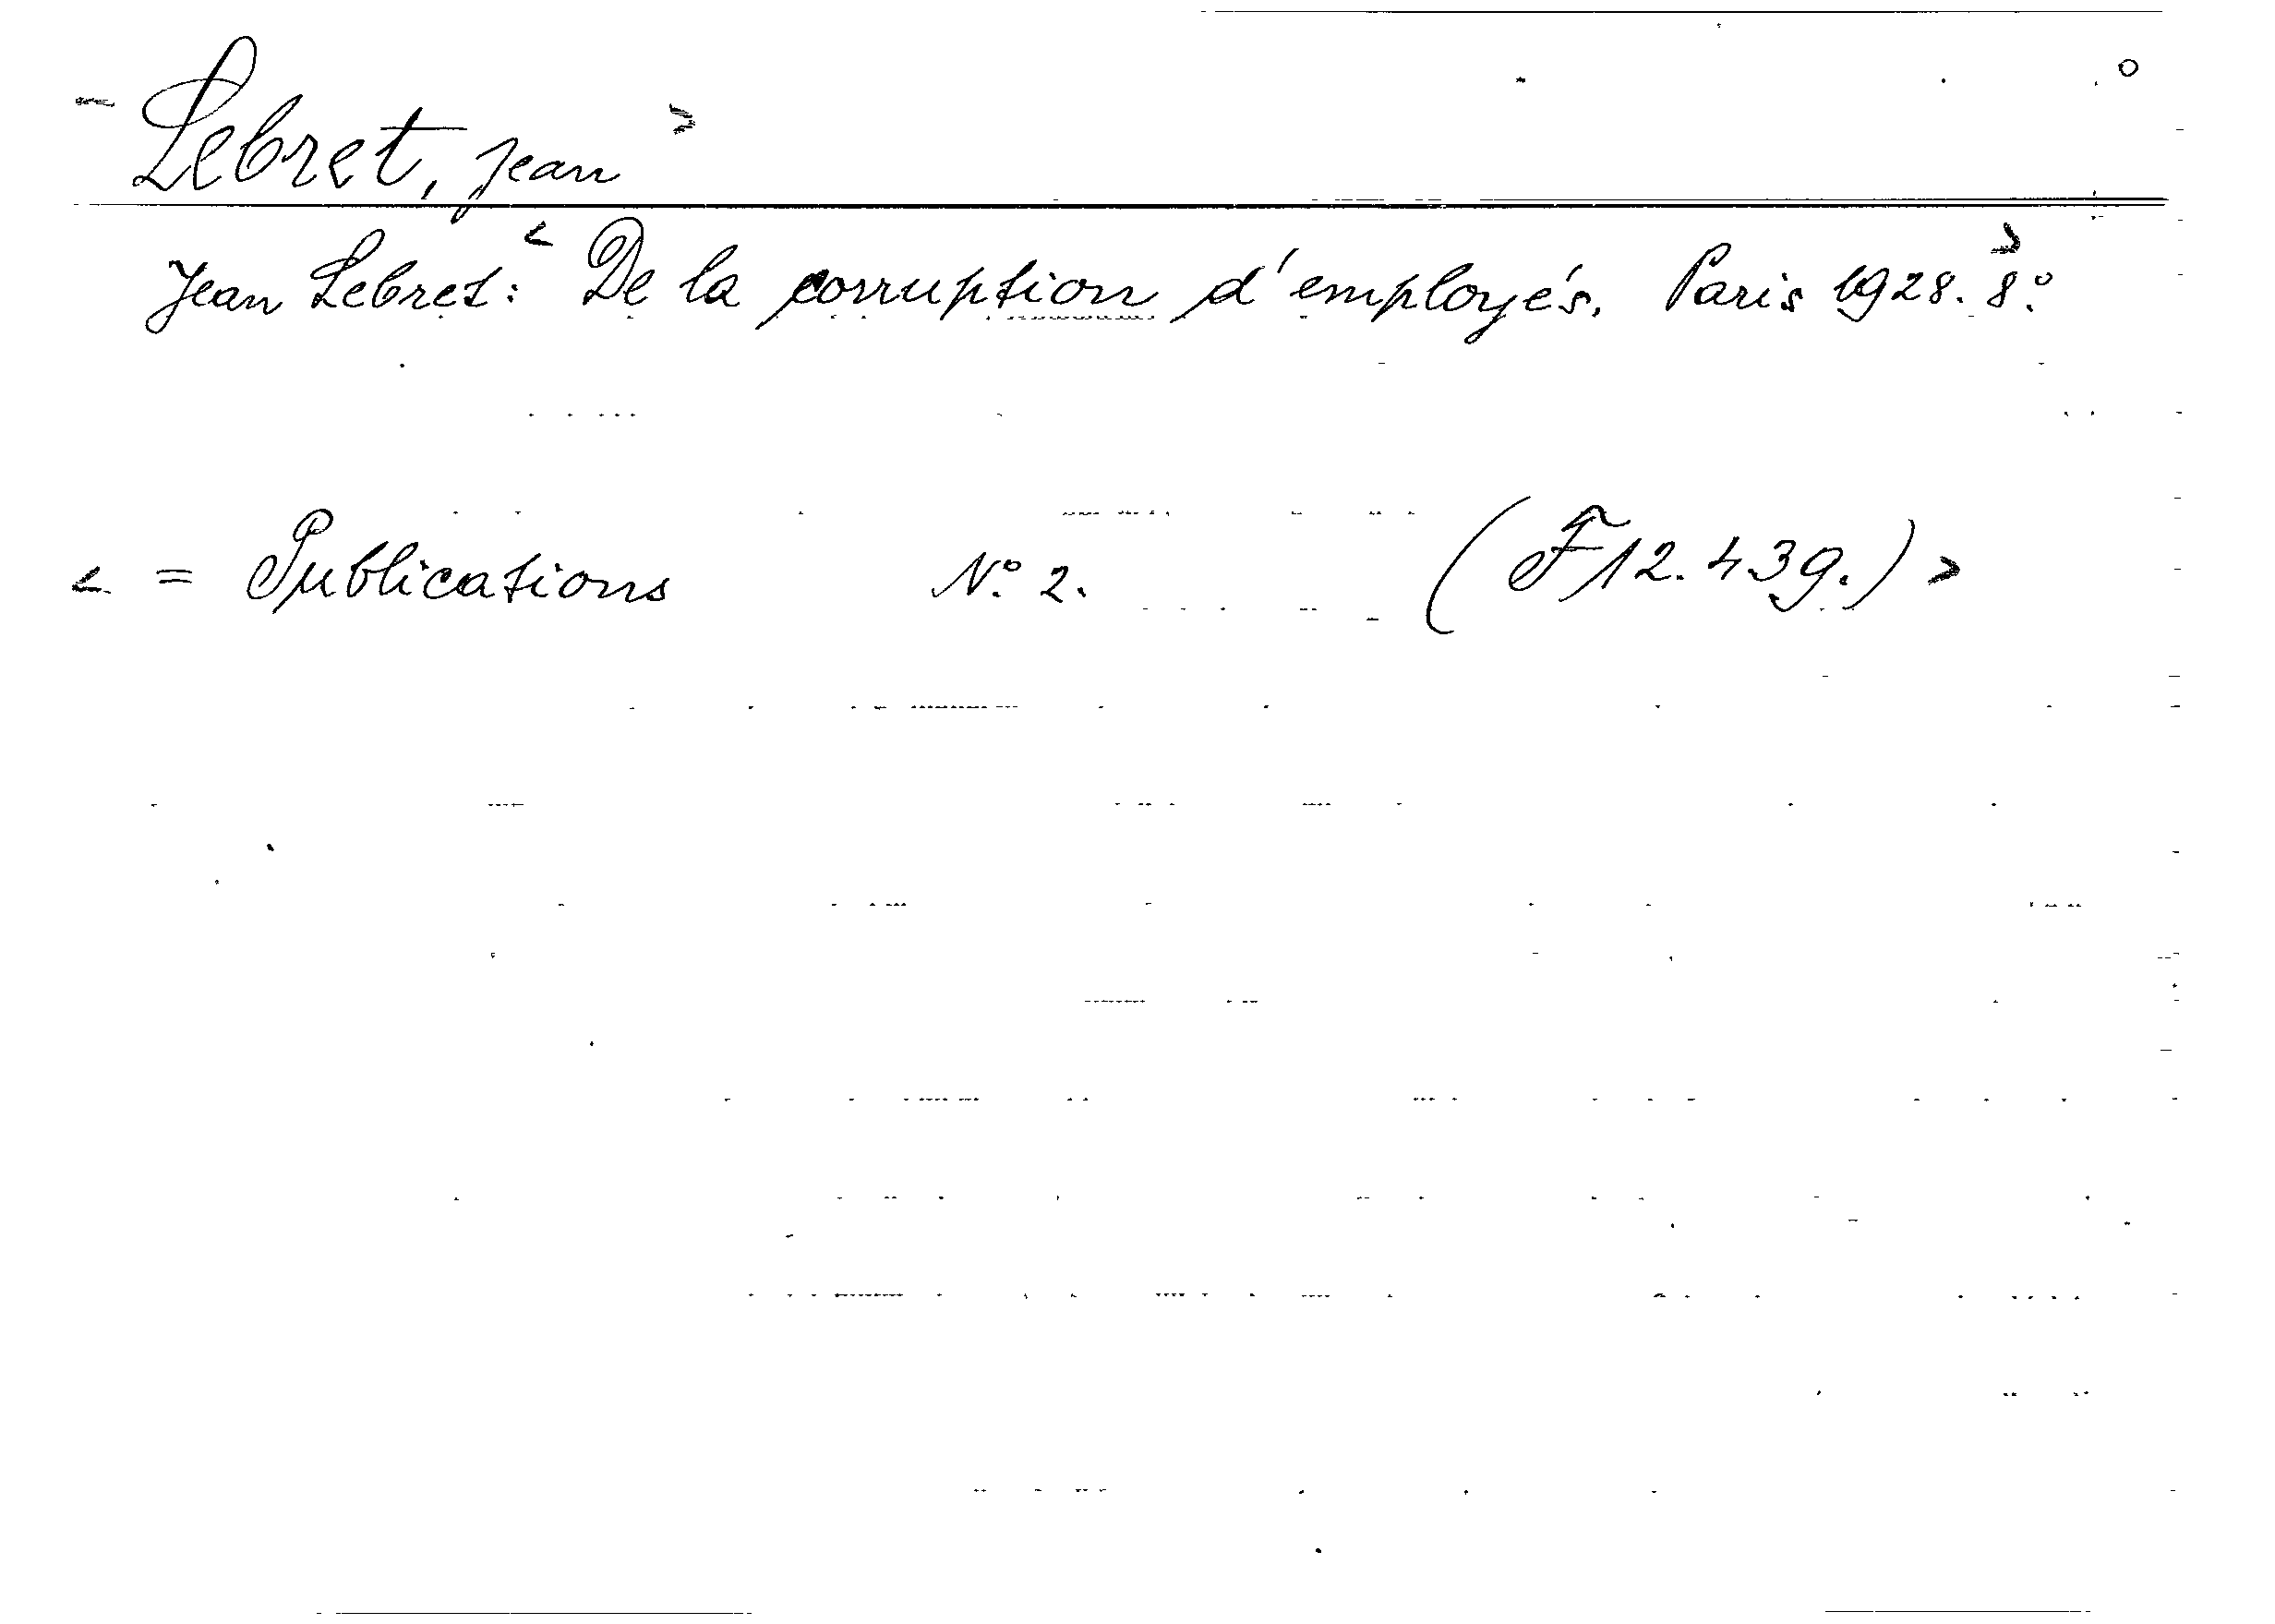 < Lebret, Jean >
Jean Lebret: < De la corruption d'employés. Paris 1928. 8o. >
< = Publications No. 2. (F12.439.) >